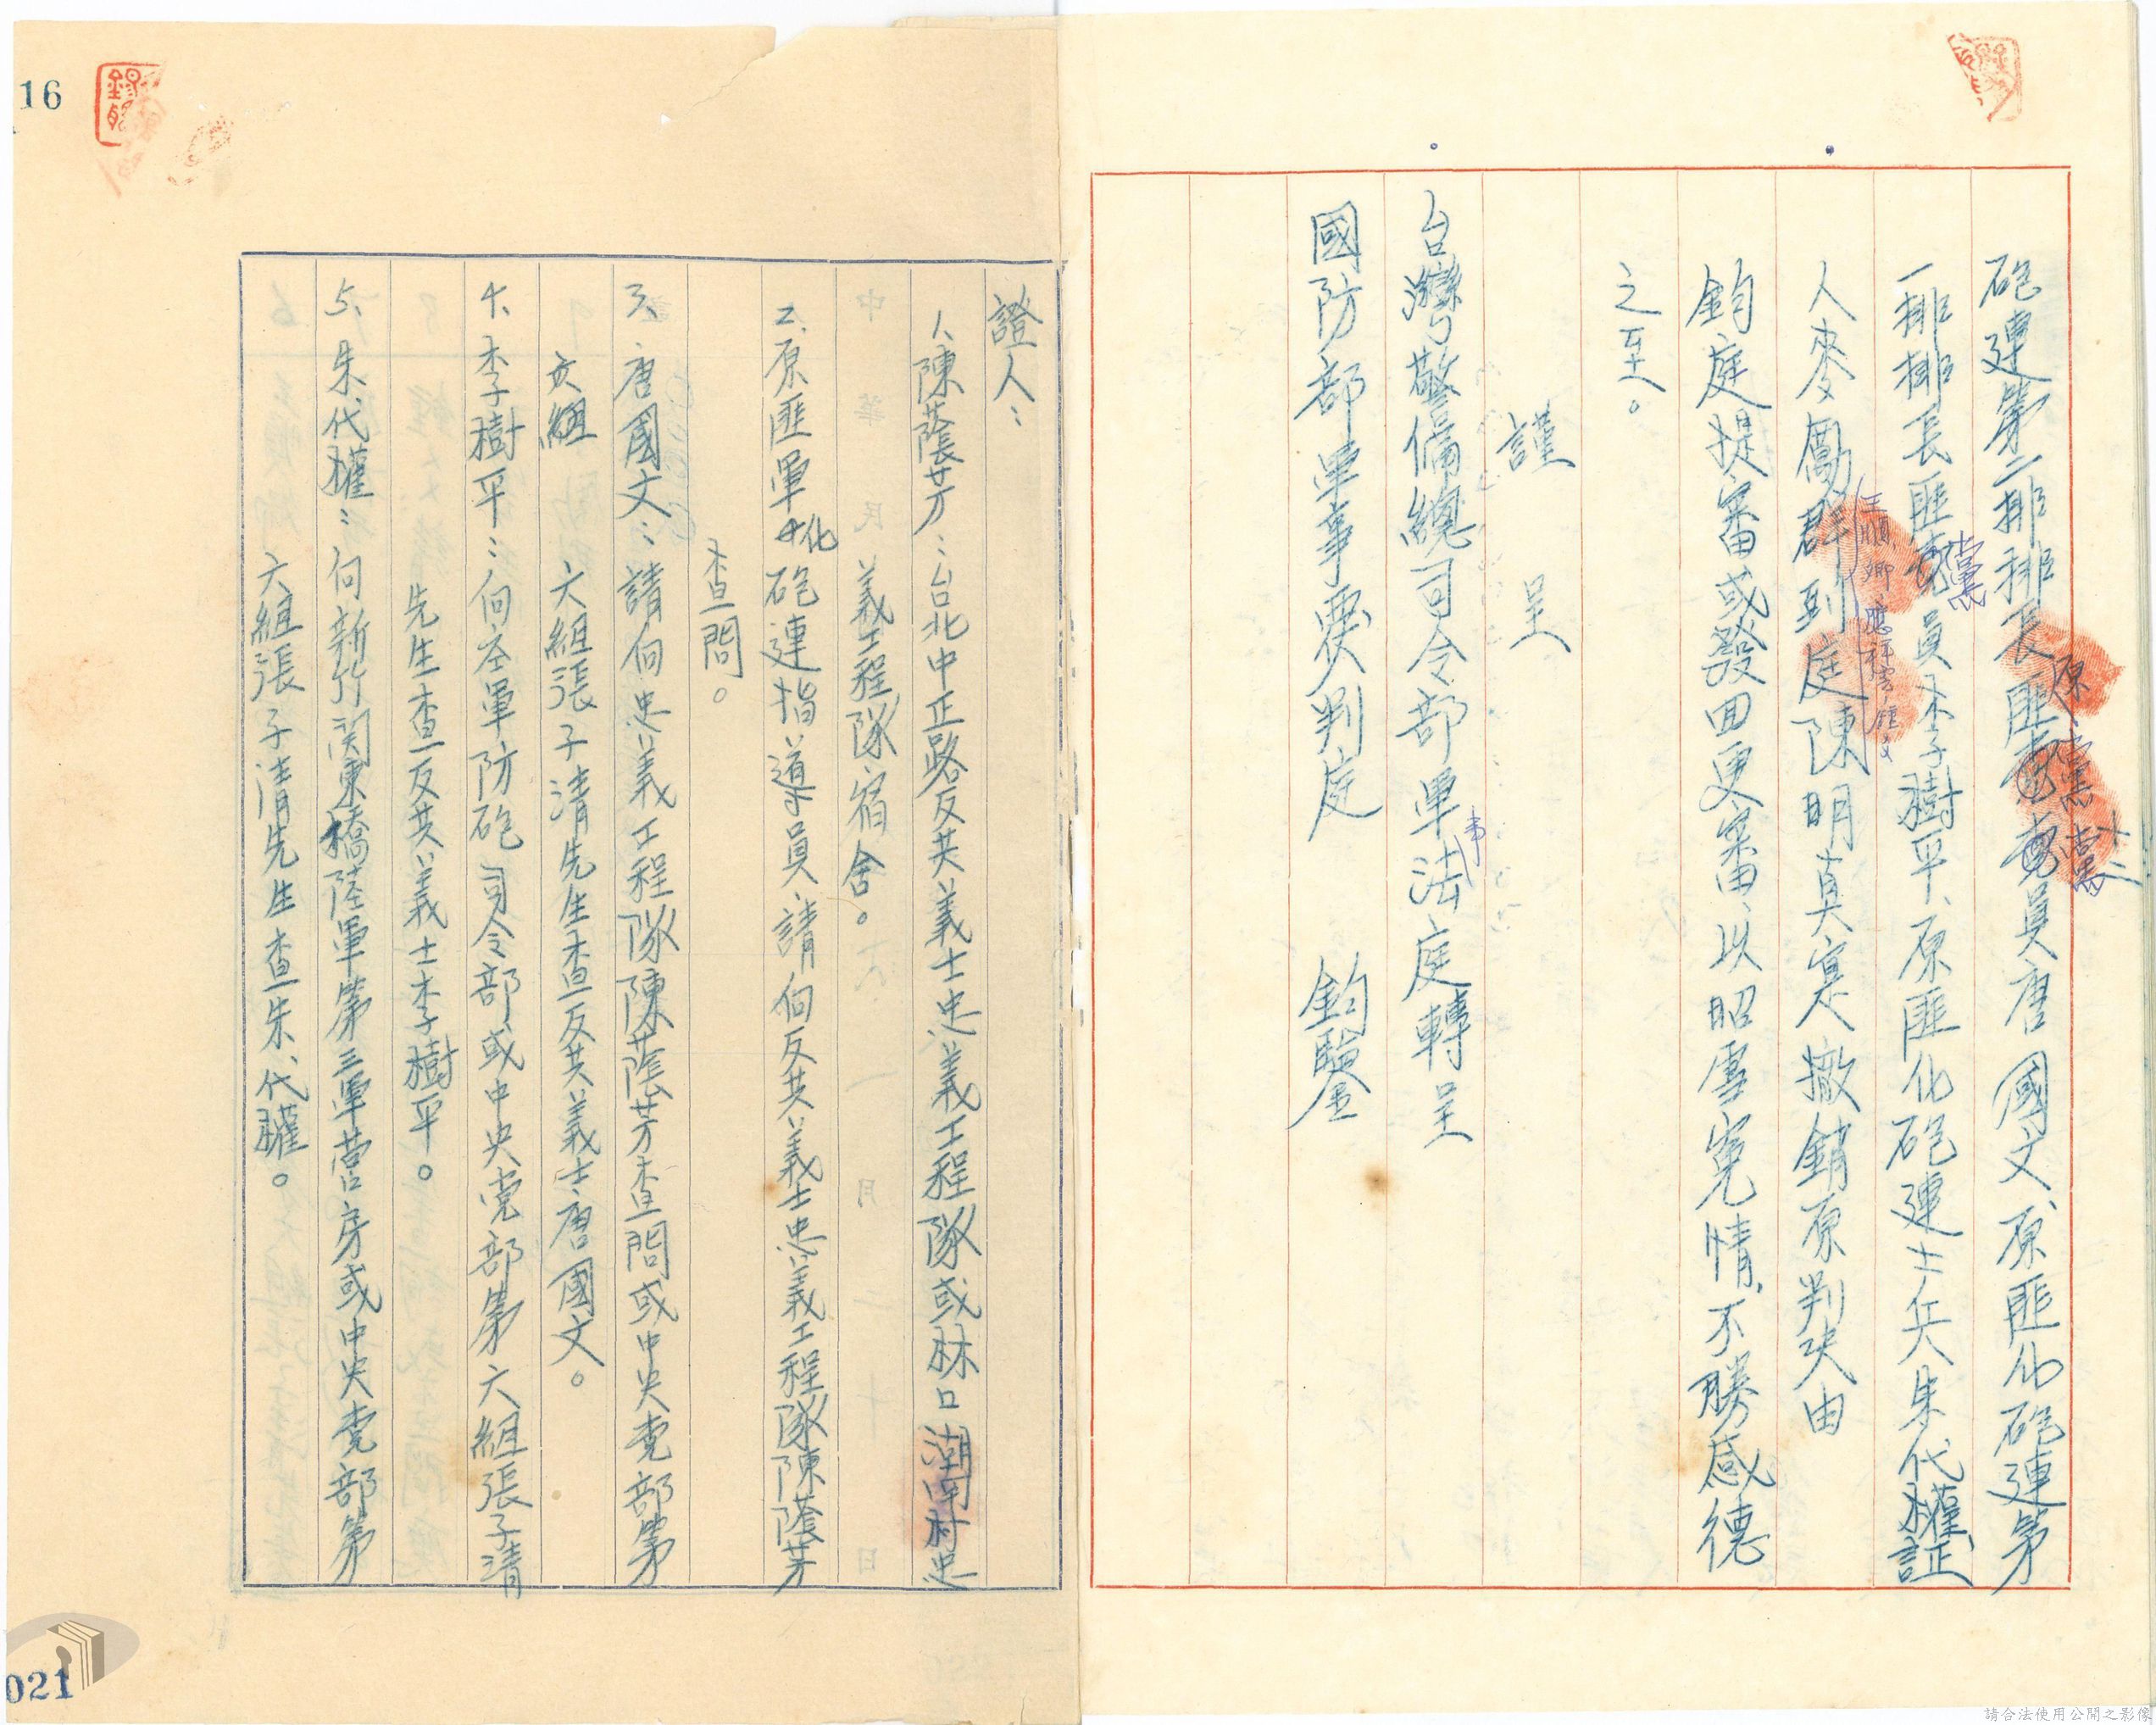 砲連第二排排長匪黨黨員唐國文、原匪化砲連第
一排排長匪黨員李樹平、原匪化砲連士兵朱代權、証
人麥勵群到庭陳明真寔、撤銷原判決由
王順卿
鈞庭提審或發回更審、以昭雪冤情、不勝感德
之至。
謹
呈
台灣警備總司令部軍法庭轉呈
國防部軍事覆判庭 鈞鑒
證人：
1、陳蔭芳：台北中正路反共義士忠義工程隊或林口湖南村忠
義工程隊宿舍。
2、原匪軍化砲連指導員、請向反共義士忠義工程隊陳蔭芳
查問。
3、唐國文：請向忠義工程隊陳蔭芳查問或中央党部第
六組張子清先生查反共義士唐國文。
4、李樹平：向空軍防砲司令部或中央党部第六組張子清
先生查反共義士李樹平。
5、朱代權：向新竹関東橋陸軍第三軍营房或中央党部第
六組張子清先生查朱代權。
16
021
請合法使用公開之影像